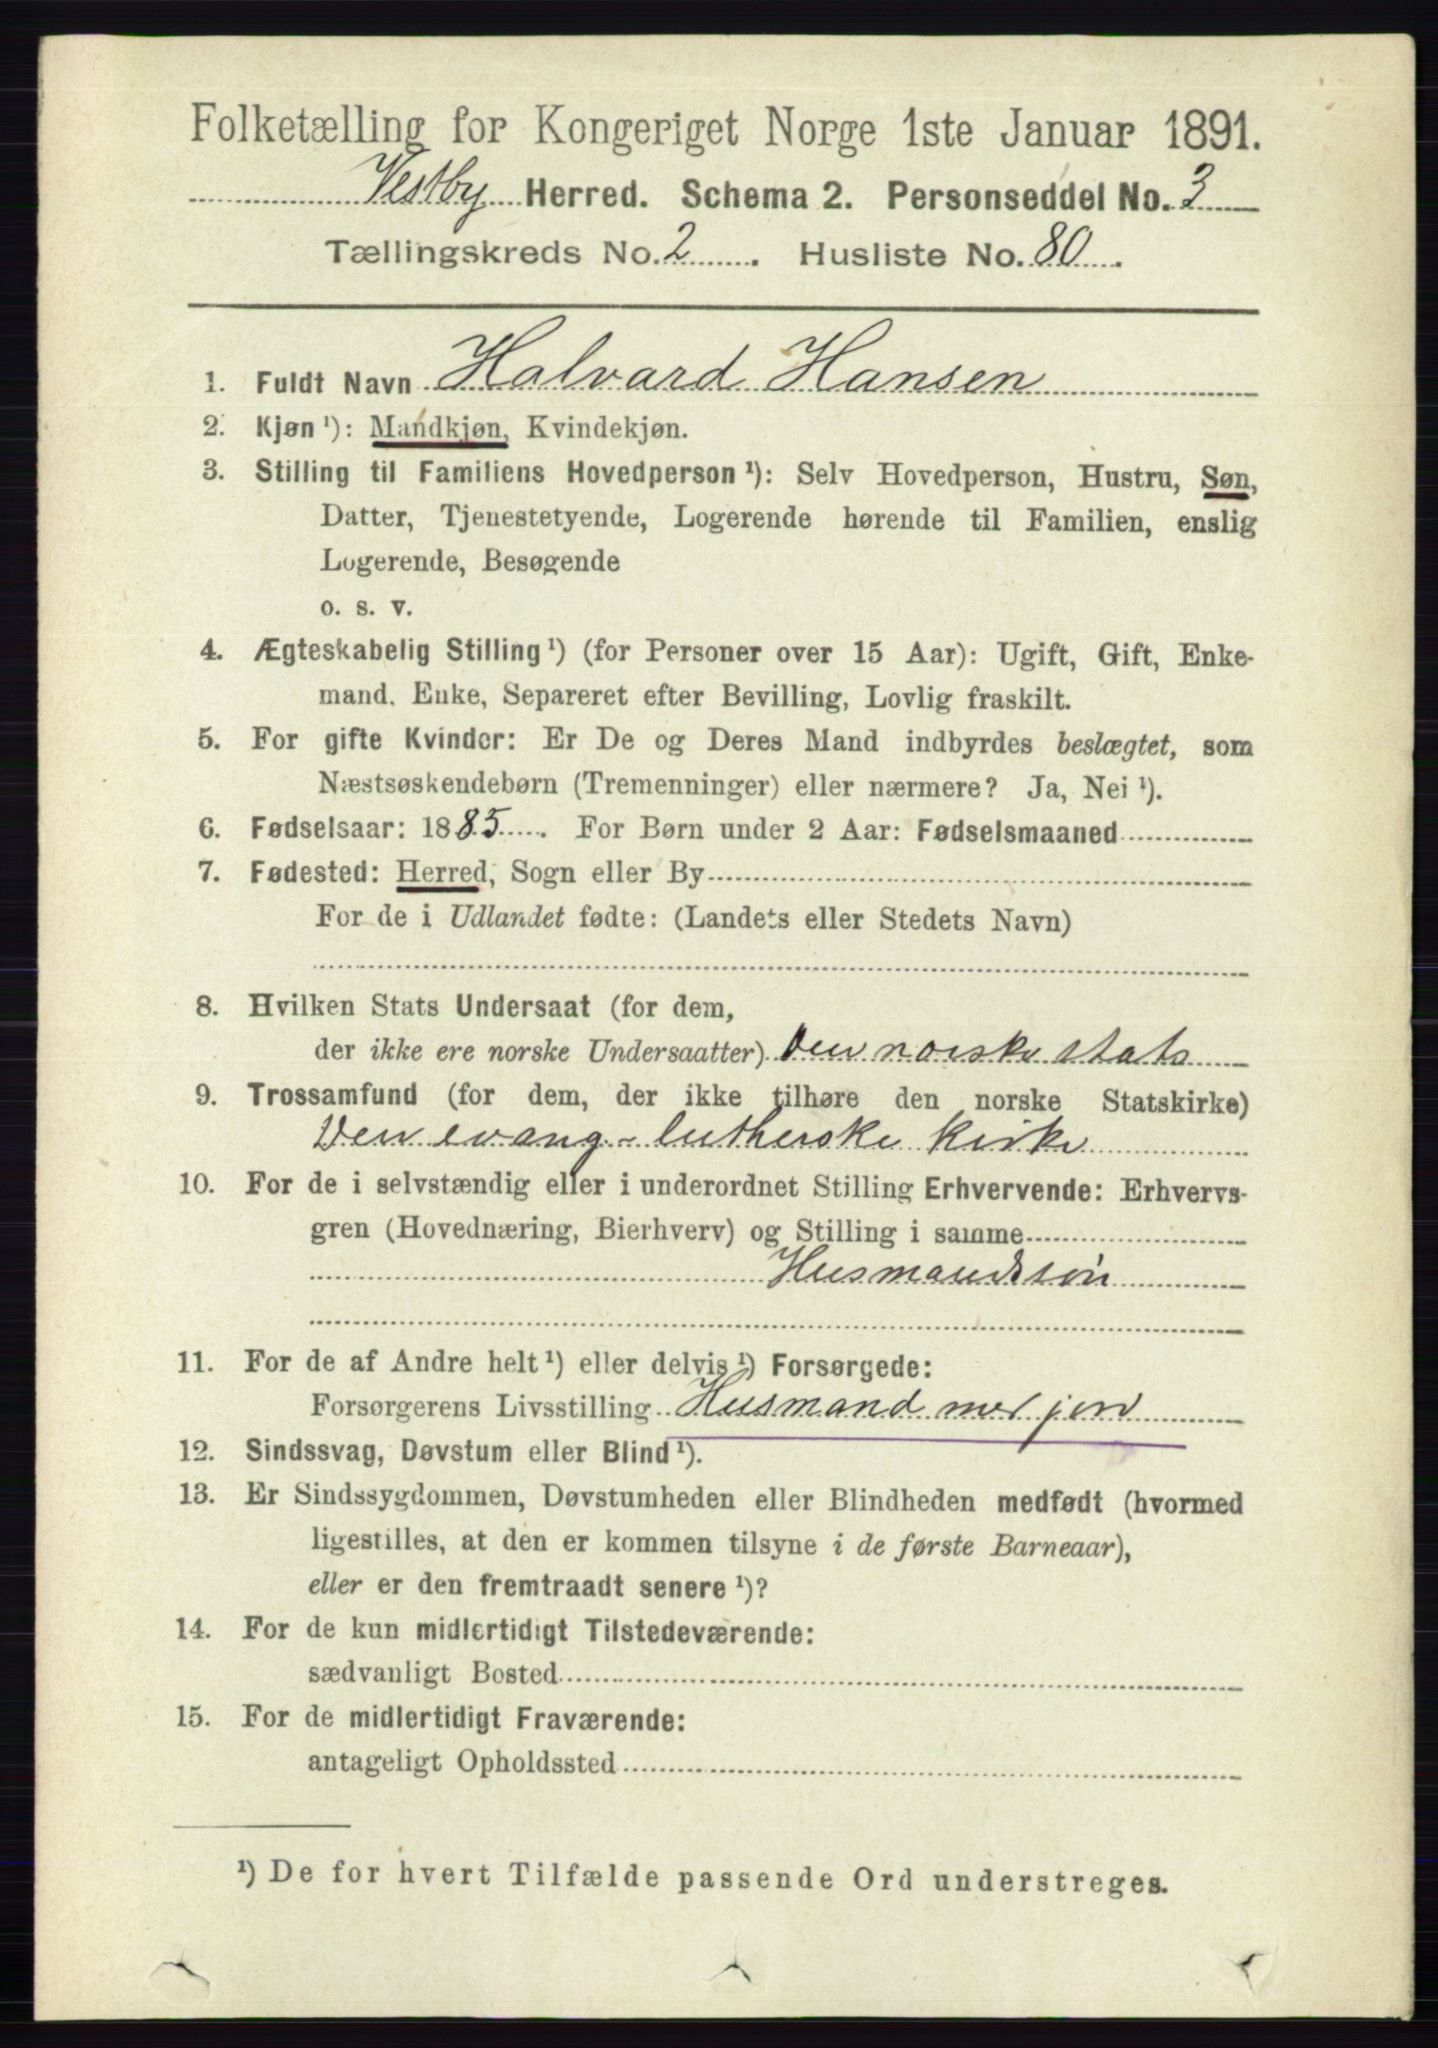 Folketælling for Kongeriget Norge 1ste Januar 1891.
Vestby Herred. Schema 2. Personseddel No. 3
Tællingskreds No. 2. Husliste No. 80.
1. Fuldt Navn Halvard Hansen
2. Kjøn ¹): Mandkjøn, Kvindekjøn.
3. Stilling til Familiens Hovedperson ¹): Selv Hovedperson, Hustru, Søn,
Datter, Tjenestetyende, Logerende hørende til Familien, enslig
Logerende, Besøgende
o. s. v.
4. Ægteskabelig Stilling ¹) (for Personer over 15 Aar): Ugift, Gift, Enke-
mand, Enke, Separeret efter Bevilling, Lovlig fraskilt.
5. For gifte Kvinder: Er De og Deres Mand indbyrdes beslægtet, som
Næstsøskendebørn (Tremenninger) eller nærmere? Ja, Nei ¹).
6. Fødselsaar: 1885. For Børn under 2 Aar: Fødselsmaaned
7. Fødested: Herred, Sogn eller By
For de i Udlandet fødte: (Landets eller Stedets Navn)
8. Hvilken Stats Undersaat (for dem,
der ikke ere norske Undersaatter) Den norske stats
9. Trossamfund (for dem, der ikke tilhøre den norske Statskirke)
Den evang-lutherske kirke
10. For de i selvstændig eller i underordnet Stilling Erhvervende: Erhvervs-
gren (Hovednæring, Bierhverv) og Stilling i samme
Husmandssøn
11. For de af Andre helt ¹) eller delvis ¹) Forsørgede:
Forsørgerens Livsstilling Husmand med jord
12. Sindssvag, Døvstum eller Blind ¹).
13. Er Sindssygdommen, Døvstumheden eller Blindheden medfødt (hvormed
ligestilles, at den er kommen tilsyne i de første Barneaar),
eller er den fremtraadt senere ¹)?
14. For de kun midlertidigt Tilstedeværende:
sædvanligt Bosted
15. For de midlertidigt Fraværende:
antageligt Opholdssted
¹) De for hvert Tilfælde passende Ord understreges.